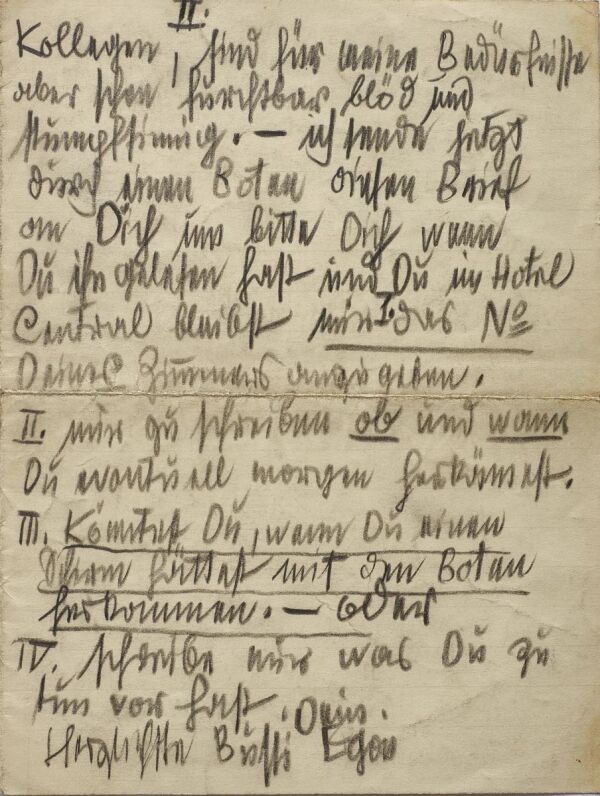 II.
Kollegen, sind für meine Bedürfnisse
aber schon furchtbar blöd und
stumpfsinnig. – ich sende jetzt
durch einen Boten diesen Brief
an Dich und bitte Dich wenn
Du ihn gelesen hast und Du im Hotel
Central bleibst mir I. das No
Deines Zimmers anzugeben.
II. mir zu schreiben ob und wann
Du eventuell morgen herkämest.
III. Könntest Du, wenn Du einen
Schirm hättest mit den Boten
herkommen. – oder
IV. schreibe mir was Du zu
tun vor hast. Dein.
Herzlichste Bussi Egon